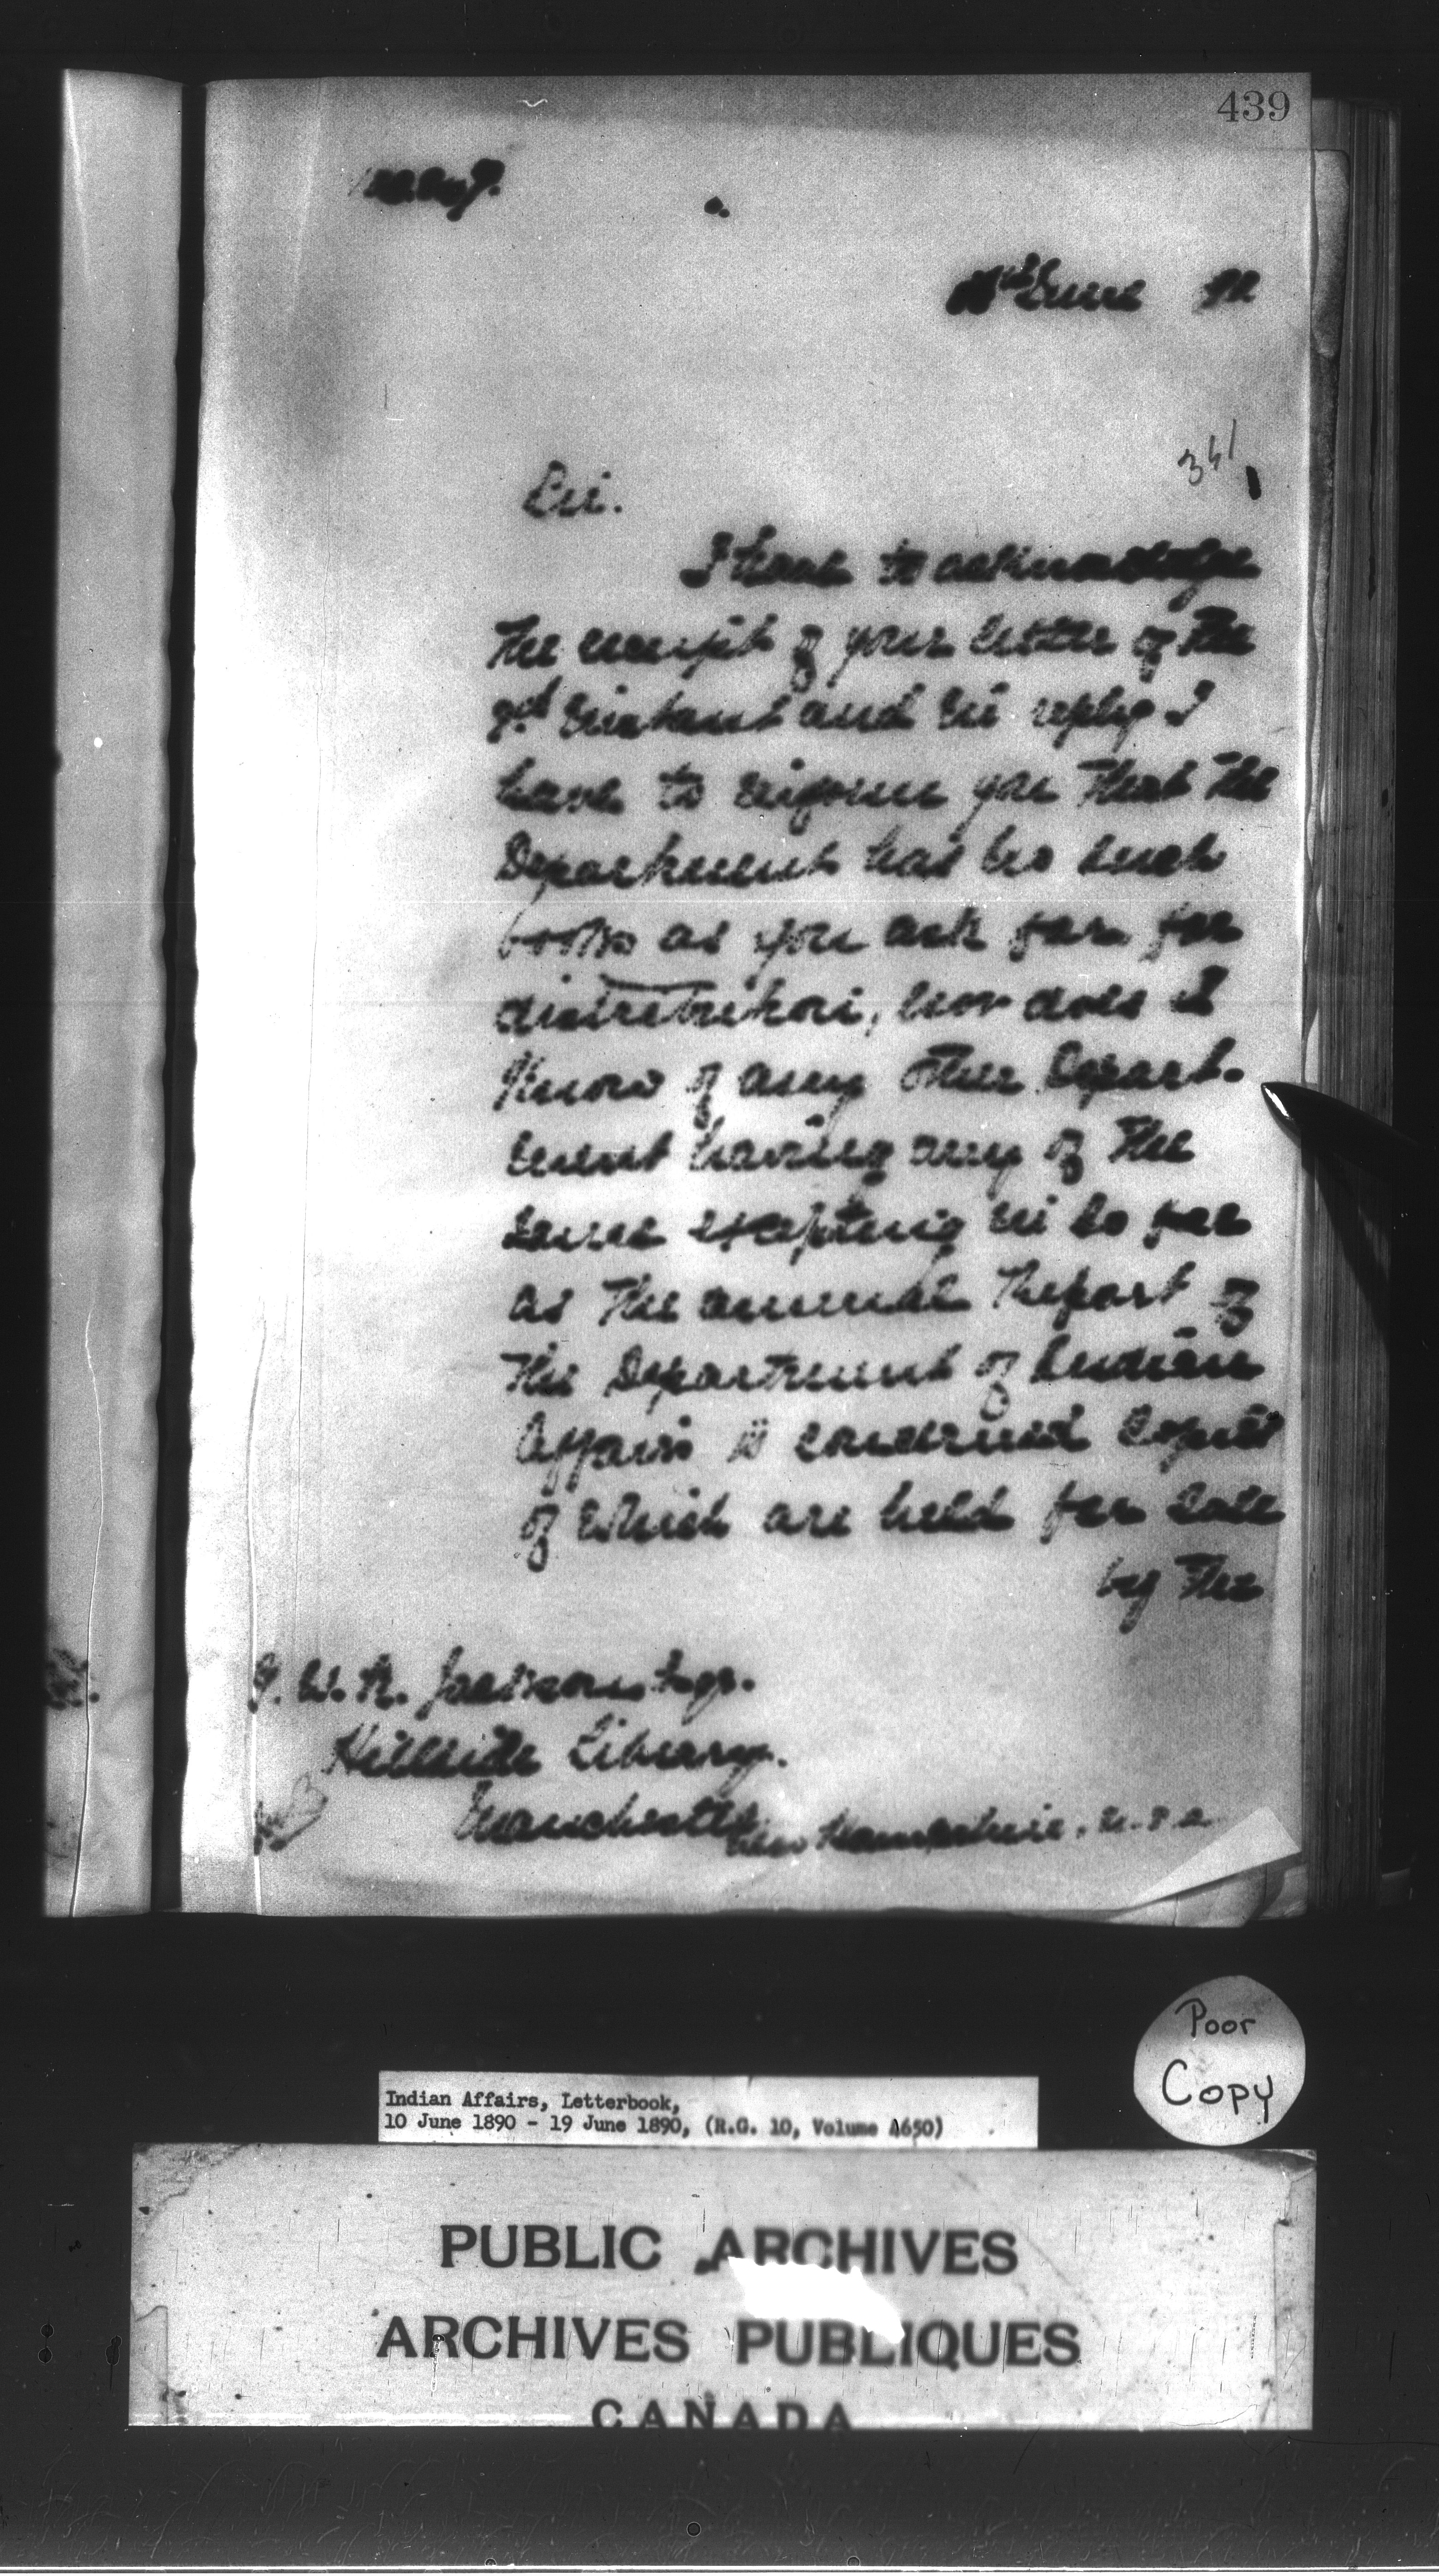 439
June 90
341
Sir.
I have to acknowledge
the receipt of your letter of the
9th Instant and in reply I
have to inform you that the
Department has no such
books as you ask for for
distribution, nor does it
Know of any other Depart-
ment having any of the
same excepting in so far
as the annual Report of
the Department of Indian
Affairs is concerned copies
of which are held for sale
by the
W. R. Jackson Esqr.
Hillside Library.
Manchester New Hampshire. U.S.A.
Poor
Copy
Indian Affairs, Letterbook,
10 June 1890 - 19 June 1890, (R.G. 10, Volume 4650)
PUBLIC ARCHIVES
ARCHIVES PUBLIQUES
CANADA